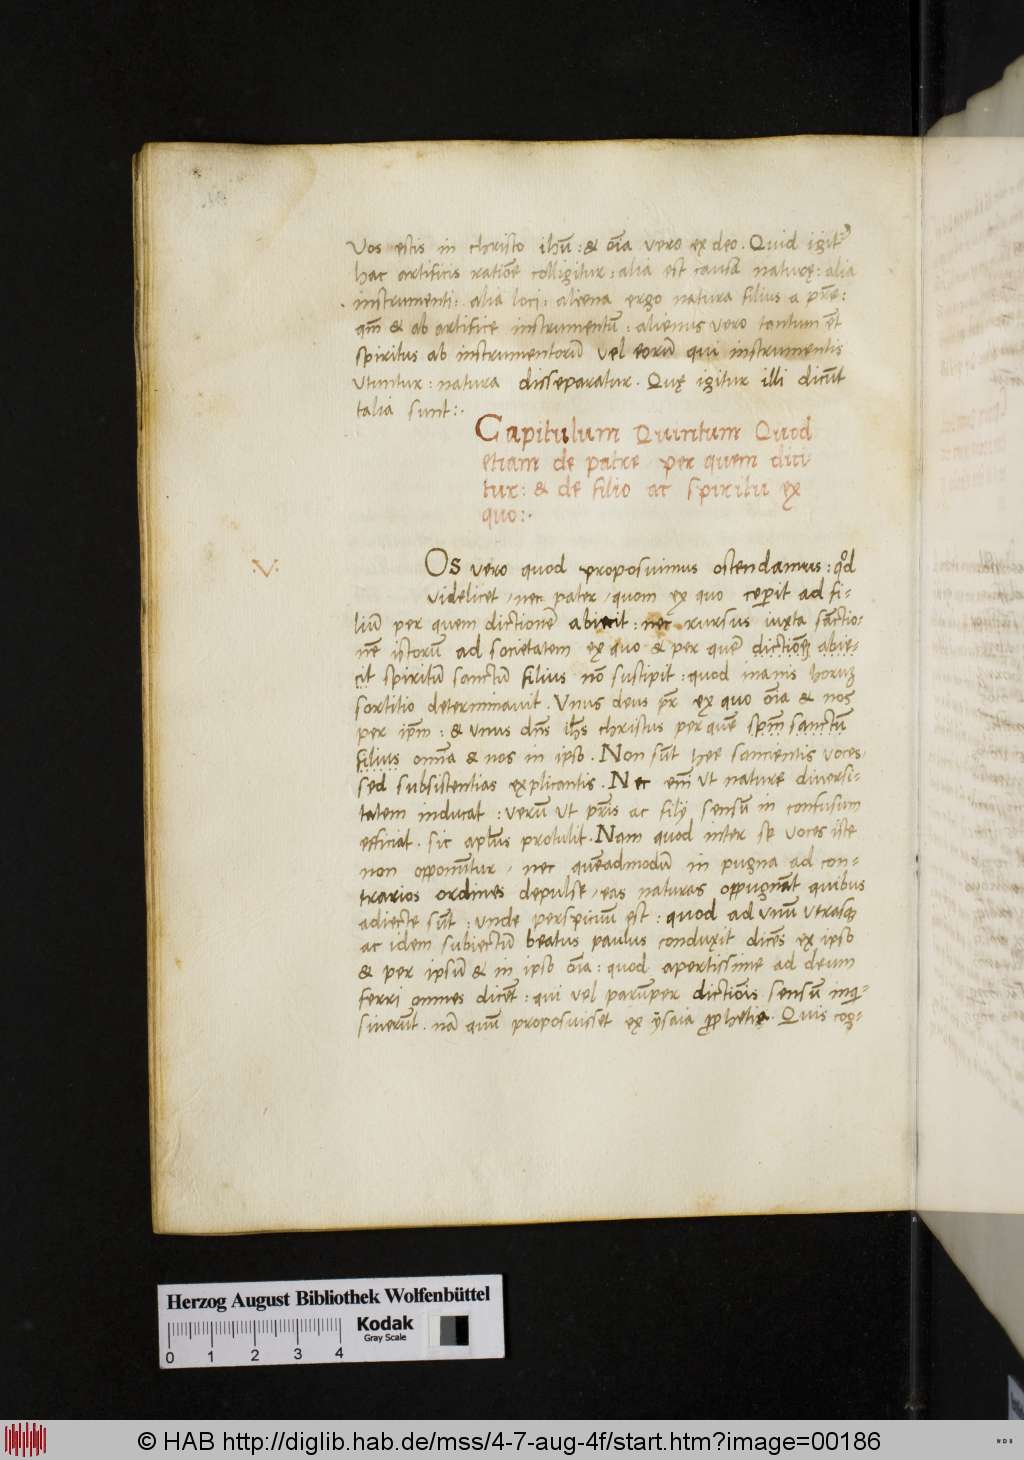 Vos estis in christo ihū: & oīa vero ex deo. Quid igit᷑
hac artificis ratiōe colligitur: alia est causa naturę: alia
instrumenti: alia loci: aliena ergo natura filius a pr̄e:
qm̄ & ab artifice instrumentū: alienus vero tantum ēt
spiritus ab instrumentorū vel eorū qui instrumentis
utuntur: natura disseparatur. Quę igitur illi dicūt
talia sunt:.
Capitulum Quintum Quod
etiam de patre per quem dici
tur: & de filio ac spiritu ex
quo:.
.V.
Os vero quod proposuimus ostendamus: qd̄
videlicet, nec pater, quom ex quo ceperit ad fi-
liū per quem dictionē abiecit: nec rursus iuxta sanctio-
nē istorū ad societatem ex quo & per quē dictiōē abie-
cit spiritū sanctū filius nō sustipit: quod inanis horum
sortitio determinavit. Vnus deus pr̄ ex quo oīa & nos
per ip̄m: & unus dn̄s ih̄s christus per quē spm̄ sanctū
filius omnīa & nos in ipso. Non sūt hee sancientis voces,
sed subsistentias explicantis. Nec em̄ ut nature diversi-
tatem inducat: verū ut pr̄is ac filij sensū in confusum
efficiat. sic apl̄us protulit. Nam quod inter se voces iste
non opponūtur, nec quēadmodū in pugna ad con-
trarios ordines depulse, eas naturas oppugnāt quibus
adiecte sūt: unde perspicuū est: quod ad unū verasq3
ac idem subiectū beatus paulus conduxit dicēs ex ipso
& per ipsū & in ipso oīa: quod apertissime ad deum
ferri omnes dicēt: qui vel parūper dictiōis sensū inqui-
sinerūt. nā quū proposuisset ex ysaia prophetia. Quis cog-
Herzog August Bibliothek Wolfenbüttel
Kodak
Gray Scale
0 1 2 3 4
© HAB http://diglib.hab.de/mss/4-7-aug-4f/start.htm?image=00186